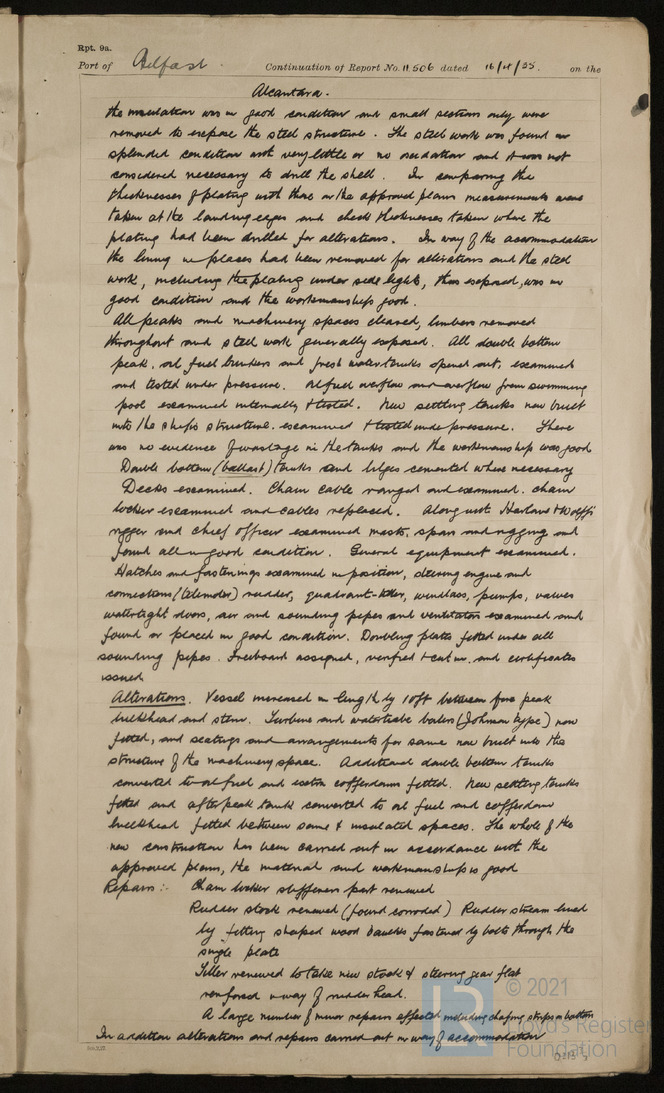 Rpt. 9a.
Port of Belfast. Continuation of Report No. 11506 dated 16/4/35. on the
Alcantara.
the insulation was in good condition and small sections only were
removed to expose the steel structure. The steel work was found in
splendid condition with very little or no oxidation and it was not
considered necessary to drill the shell. In comparing the
thicknesses of plating with those on the approved plans measurements were
taken at the landing edges and check thicknesses taken where the
plating had been drilled for alterations. In way of the accommodation
the lining in places had been removed for alterations and the steel
work, including the plating under side lights, thus exposed, was in
good condition and the workmanship good.
All peaks and machinery spaces cleared, limbers removed
throughout and steel work generally exposed. All double bottom
peak, oil fuel bunkers and fresh water tanks opened out, examined
and tested under pressure. Oil fuel overflow and overflow from swimming
pool examined internally & tested. New settling tanks now built
into the ship's structure, examined & tested under pressure. There
was no evidence of wastage in the tanks and the workmanship was good
Double bottom (ballast) tanks and bilges cemented where necessary
Decks examined. Chain cable ranged and examined. Chain
locker examined and cables replaced. Along with Harland & Wolff's
rigger and chief officer examined masts, spars and rigging and
found all in good condition. General equipment examined.
Hatches and fastenings examined in position, steering engine and
connections (telemotor) rudder, quadrant tiller, windlass, pumps, valves
watertight doors, air and sounding pipes and ventilators examined and
found or placed in good condition. Doubling plates fitted under all
sounding pipes. Freeboard assigned, verified & cut in. and certificates
issued
Alterations. Vessel increased in length by 10ft between fore peak
bulkhead and stem. Turbine and watertube boilers (Johnson type) now
fitted, and seatings and arrangements for same now built into the
structure of the machinery space. Additional double bottom tanks
converted to oil fuel and extra cofferdams fitted. New settling tanks
fitted and after peak tank converted to oil fuel and cofferdam
bulkhead fitted between same & insulated spaces. The whole of the
new construction has been carried out in accordance with the
approved plans, the material and workmanship is good
Repairs :- Chain locker stiffeners part renewed
Rudder stock renewed (found corroded) Rudder stream lined
by fitting shaped wood baulks fastened by bolts through the
single plate
Tiller renewed to take new stock & steering gear flat
reinforced in way of rudder head.
A large number of minor repairs effected including chafing strips on bottom
In addition alterations and repairs carried out in way of accommodation
© 2021
LR
Lloyd's Register
Foundation